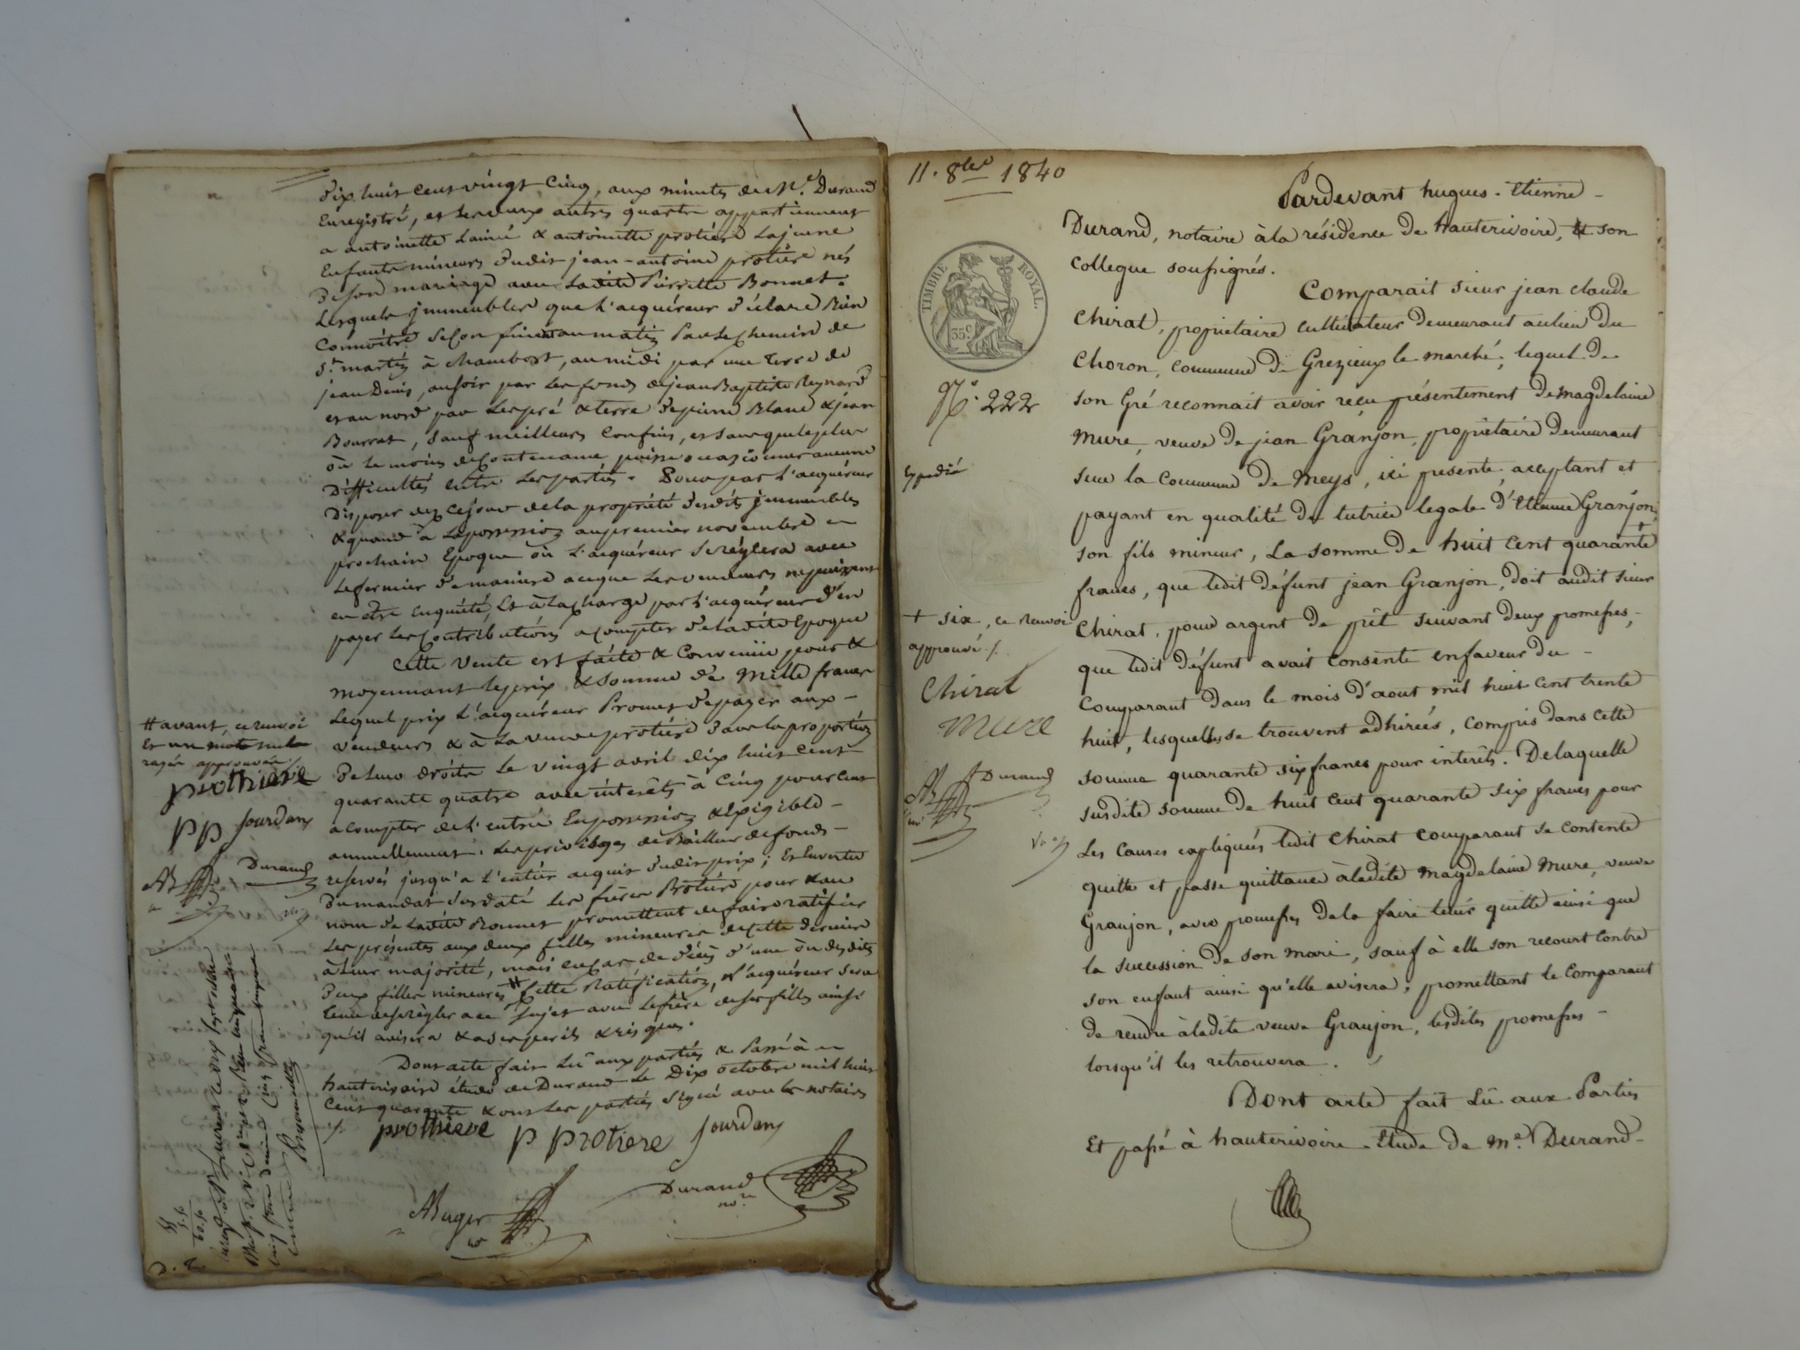 Dix huit cent vingt cinq, aux minutes de Me. Durand
Enregistré, et les deux autres quarts appartiennent
a antoinette L'ainée & antoinette protière Lajeune
Enfants mineurs dudit jean-antoine protière nés
De son mariage avec Ladite Pierrette Bonnet.
Lesquels jmmeubles que l'acquéreur déclare Bien
Connoitre Se Confinent au matin Par Le Chemin de
St. martin à Chambost, au midi par une terre de
jean Denis, au soir par Les fonds de jean Baptiste Reynard
et au nord par Les pré & terre de pierre Blanc & jean
Bourrat, Sauf meilleurs Confins, et Sans que le plus
où le moins de Contenance puisse occasionner aucune
Difficultés entre Les parties. Pour par L'acquéreur
Disposer dez Cejour de la propriété desdits jmmeubles
& quand à La possession au premier novembre
prochain Epoque où L'acquéreur Se réglera avec
Le fermier de manière a ce que Les vendeurs ne puissent
en être enquété, Et à La Charge par l'acquéreur d'en
payer Les Contributions a Compter de Ladite Epoque
Cette vente est faite & Convenüe pour &
moyennant Le prix & Somme de Mille francs
Lequel prix L'acquéreur Promet de payer aux -
vendeurs & à La veuve protière dans la proportion
De Leurs droits Le vingt avril dix huit Cent
quarante quatre avec intérêts à Cinq pour Cent
a Compter de l'entrée En possession & Exigible -
annuellement. Les privilèges de Bailleur de fonds -
reservés jusqu'a l'entier acquit dudit prix; Et En vertu
Du mandat Susdaté Les frères Protière pour & au
nom de Ladite Bonnet promettent de faire ratifier
Les présentes aux deux filles mineures de Cette dernière
à Leur majorité, mais en Cas de décès d'une où desdites
Deux filles mineures # Cette Ratification, L'acquéreur Sera
tenu de se régler a ce Sujet avec Le frère de Ses filles ainsi
qu'il avisera & a Ses perils & risques.
Dont acte fait Lû aux parties & Passé à
hauterivoire étude de Durand Le Dix octobre mil huit
Cent quarante & ont Les parties Signé avec les notaires
prothiere P Protiere jourdan
Auger
Durand
nore
# avant, ce renvoi
Et un mot nul
rayé approuvés
prothiere
P P jourdan
Durand
11. 8bre 1840
TIMBRE ROYAL.
35c.
No. 222
Expedié
+ six, ce renvoi
approuvé ./.
Chirat
mure
Durand
Pardevant hugues-Etienne -
Durand, notaire à la résidence de hauterivoire, & son
Collegue soussignés.
Comparait sieur jean claude
Chirat, propriétaire cultivateur demeurant au lieu du
Choron, Commune de Grezieux le marché; lequel de
son Gré reconnait avoir reçu présentement de magdelaine
mure, veuve de jean Granjon, propriétaire demeurant
sur la Commune de Meys, ici presente, acceptant et
payant en qualité de tutrice legale d'Etienne Granjon,
son fils mineur, La somme de huit Cent quarante +
francs, que ledit défunt jean Granjon, doit audit sieur
Chirat, pour argent de prêt suivant deux promesses, -
que ledit défunt avait Consenti en faveur du -
Comparant dans le mois d'aout mil huit Cent trente
huit, lesquelles se trouvent adhirées, Compris dans Cette
somme quarante six francs pour interêts. De laquelle
susdite somme de huit Cent quarante six francs pour
Les Causes expliquées ledit Chirat Comparant se Contente
quitte et passe quittance à ladite Magdelaine Mure, veuve
Granjon, avec promesses de la faire tenir quitte ainsi que
la succession de son mari, sauf à elle son recourt Contre
son enfant ainsi qu'elle avisera; promettant le Comparant
de rendre à ladite veuve Granjon, lesdites promesses -
lorsqu'il les retrouvera.
Dont acte fait Lû aux Parties
Et passé à hauterivoire - Etude de Me. Durand -